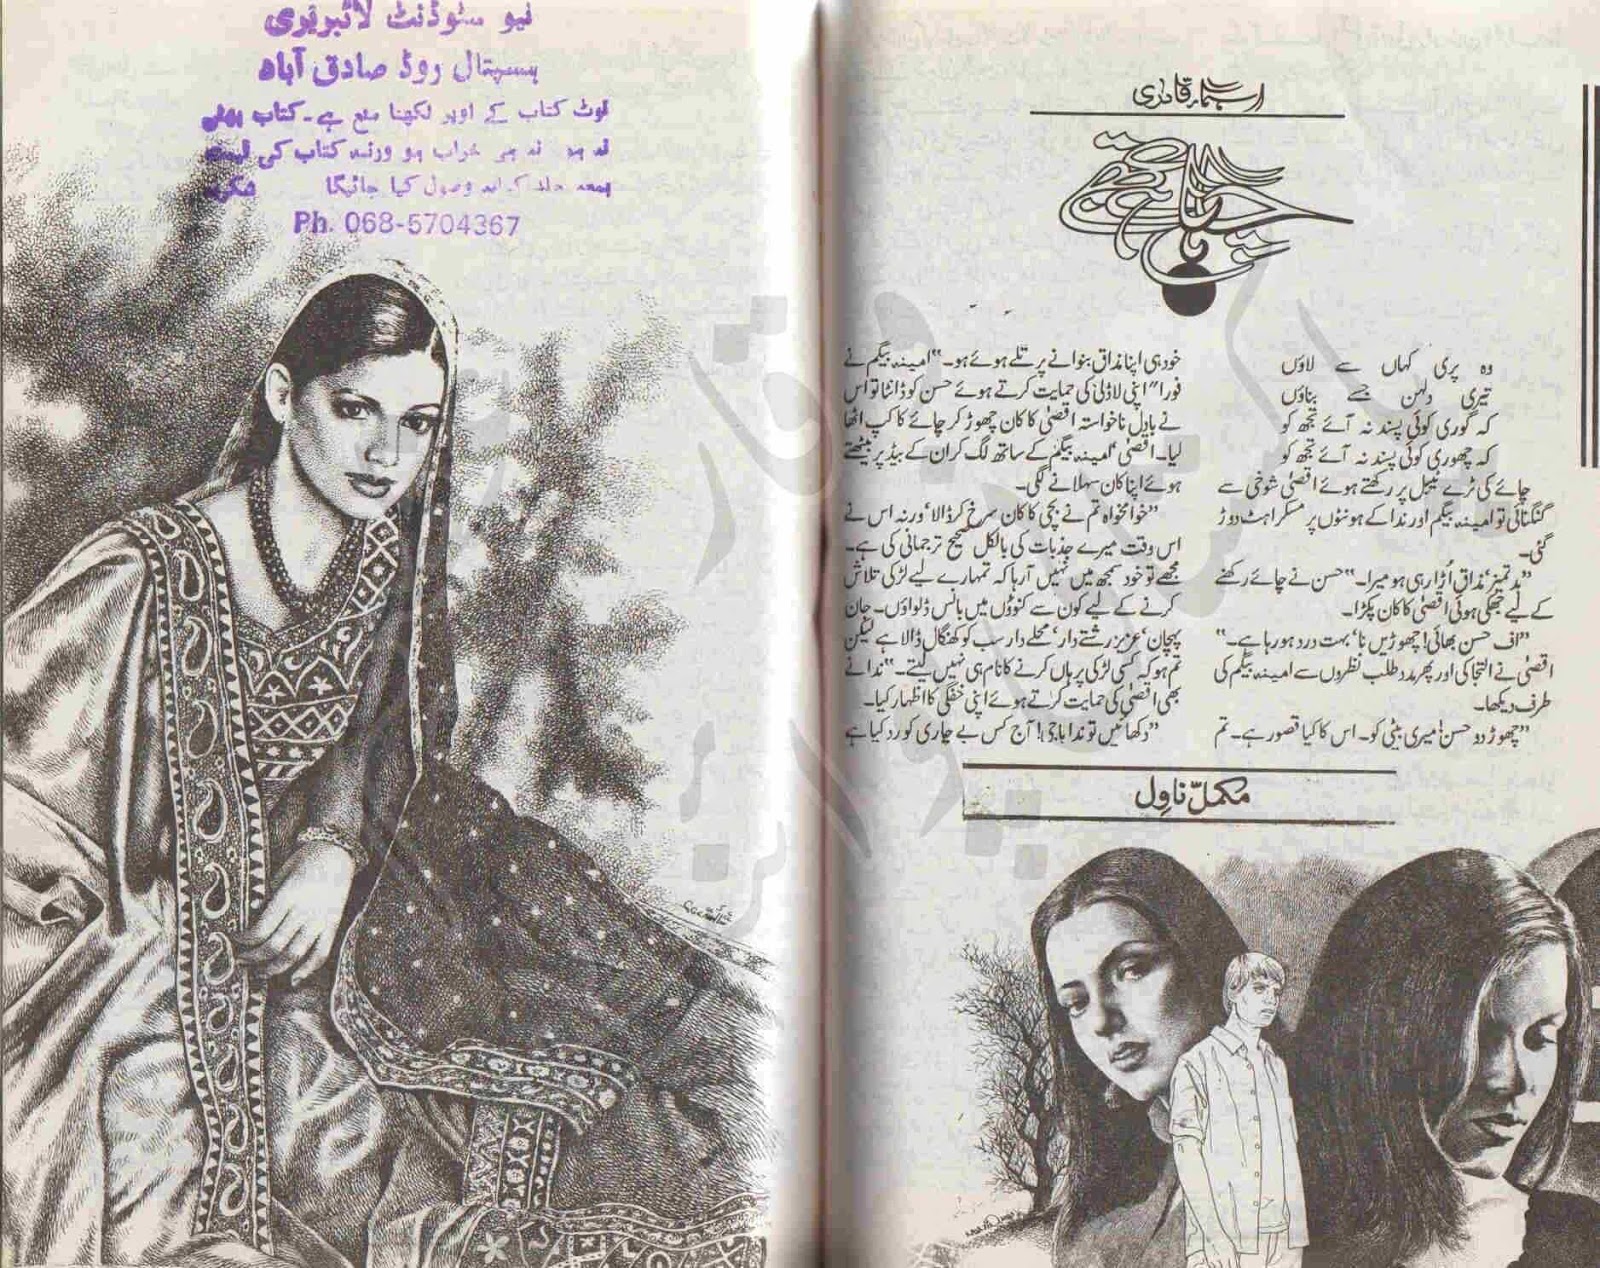 نیو سٹوڈنٹ لائبریری
ہسپتال روڈ صادق آباد
نوٹ کتاب کے اوپر لکھنا منع ہے۔ کتاب پھٹی
نہ ہو نہ ہی خراب ہو ورنہ کتاب کی قیمت
بمعہ جلد کرایہ وصول کیا جائیگا شکریہ
Ph. 068-5704367
اسماء قادری
وہ پری کہاں سے لاؤں
تیری دلہن جسے بناؤں
کہ گوری کوئی پسند نہ آئے تجھ کو
کہ چھوری کوئی پسند نہ آئے تجھ کو
چائے کی ٹرے ٹیبل پر رکھتے ہوئے اقصیٰ شوخی سے
گنگنائی تو امینہ بیگم اور ندا کے ہونٹوں پر مسکراہٹ دوڑ
گئی۔
”بدتمیز‘ مذاق اُڑا رہی ہو میرا۔“ حسن نے چائے رکھنے
کے لیے جھکی ہوئی اقصیٰ کا کان پکڑا۔
”اف حسن بھائی! چھوڑیں نا‘ بہت درد ہو رہا ہے۔“
اقصیٰ نے التجا کی اور پھر مدد طلب نظروں سے امینہ بیگم کی
طرف دیکھا۔
”چھوڑ دو حسن! میری بیٹی کو۔ اس کا کیا قصور ہے۔ تم
خود ہی اپنا مذاق بنوانے پر تلے ہوئے ہو۔“ امینہ بیگم نے
فوراً اپنی لاڈلی کی حمایت کرتے ہوئے حسن کو ڈانٹا تو اس
نے بادل ناخواستہ اقصیٰ کا کان چھوڑ کر چائے کا کپ اٹھا
لیا۔ اقصیٰ‘ امینہ بیگم کے ساتھ لگ کر ان کے بیڈ پر بیٹھتے
ہوئے اپنا کان سہلانے لگی۔
”خوامخواہ تم نے بچی کا کان سرخ کر ڈالا‘ ورنہ اس نے
اس وقت میرے جذبات کی بالکل صحیح ترجمانی کی ہے۔
مجھے تو خود سمجھ میں نہیں آ رہا کہ تمہارے لیے لڑکی تلاش
کرنے کے لیے کون سے کنوؤں میں بانس ڈلواؤں۔ جان
پہچان‘ عزیز رشتے دار‘ محلے دار سب کو کھنگال ڈالا ہے لیکن
تم ہو کہ کسی لڑکی پر ہاں کرنے کا نام ہی نہیں لیتے۔“ ندا نے
بھی اقصیٰ کی حمایت کرتے ہوئے اپنی خفگی کا اظہار کیا۔
”دکھائیں تو ندا باجی! آج کس بے چاری کو رد کیا ہے
مکمل ناول